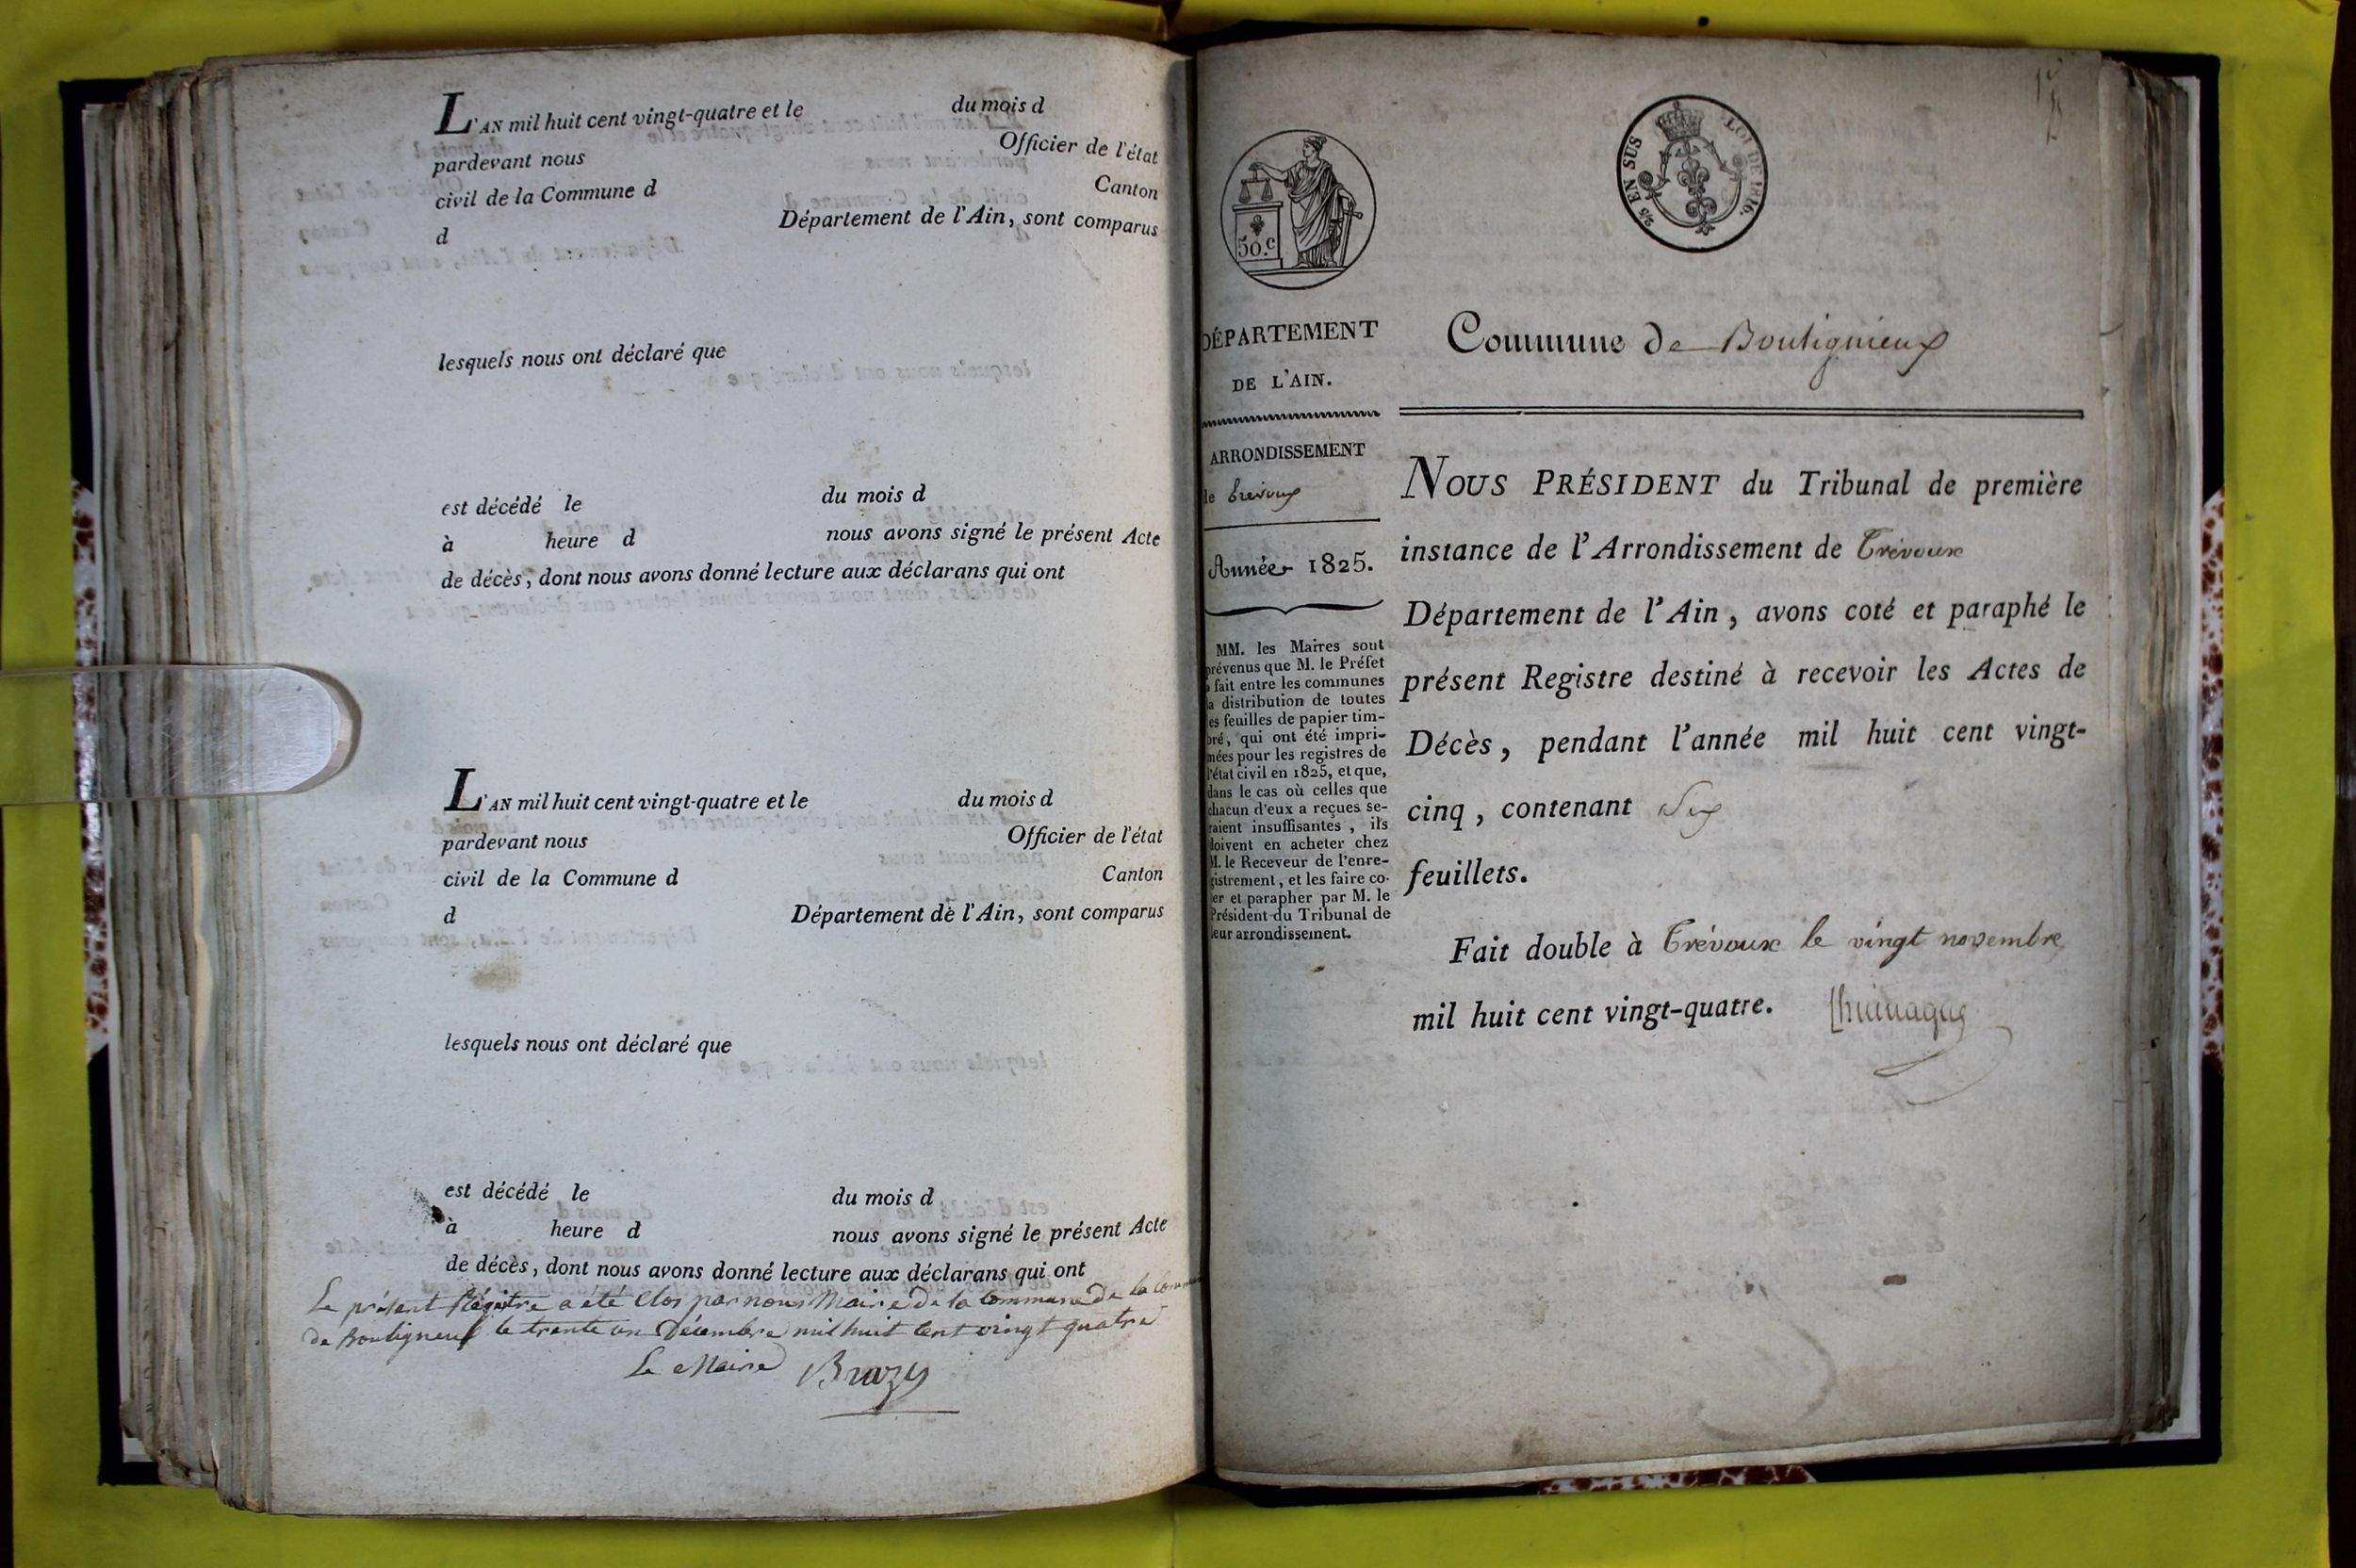 L'AN mil huit cent vingt-quatre et le du mois d
pardevant nous Officier de l'état
civil de la Commune d Canton
d Département de l'Ain, sont comparus
lesquels nous ont déclaré que
est décédé le du mois d
à heure d nous avons signé le présent Acte
de décès, dont nous avons donné lecture aux déclarans qui ont
L'AN mil huit cent vingt-quatre et le du mois d
pardevant nous Officier de l'état
civil de la Commune d Canton
d Département de l'Ain, sont comparus
lesquels nous ont déclaré que
est décédé le du mois d
à heure d nous avons signé le présent Acte
de décès, dont nous avons donné lecture aux déclarans qui ont
Le présent Régistre a été Clos par nous Maire de la Commune de la
de Bouligneux le trente un Décembre mil huit Cent vingt quatre
Le Maire Brazy
50.c
25 EN SUS LOI DE 1816.
DÉPARTEMENT
DE L'AIN.
ARRONDISSEMENT
de Trévoux
Année 1825.
MM. les Maires sont
prévenus que M. le Préfet
a fait entre les communes
la distribution de toutes
les feuilles de papier tim-
bré, qui ont été impri-
mées pour les registres de
l'état civil en 1825, et que,
dans le cas où celles que
chacun d'eux a reçues se-
raient insuffisantes, ils
doivent en acheter chez
M. le Receveur de l'enre-
gistrement, et les faire co-
ter et parapher par M. le
Président du Tribunal de
leur arrondissement.
Commune de Boulignieux
NOUS PRÉSIDENT du Tribunal de première
instance de l'Arrondissement de Trévoux
Département de l'Ain, avons coté et paraphé le
présent Registre destiné à recevoir les Actes de
Décès, pendant l'année mil huit cent vingt-
cinq, contenant Six
feuillets.
Fait double à Trévoux le vingt novembre
mil huit cent vingt-quatre.